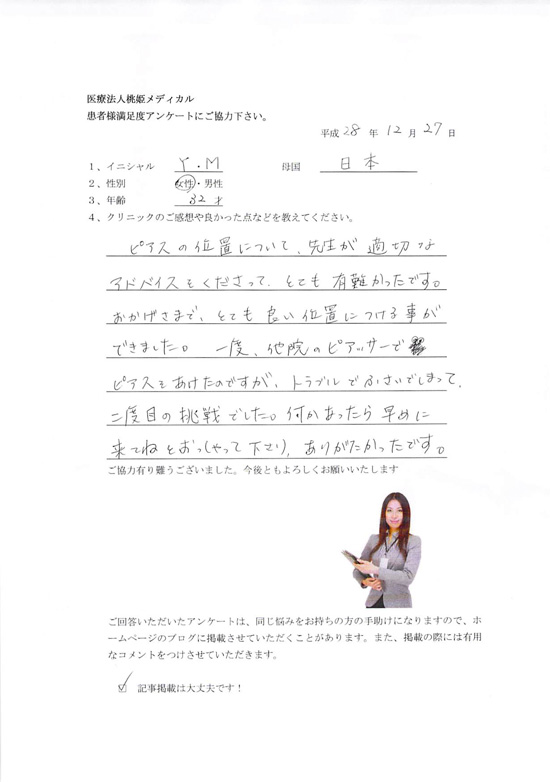 医療法人桃姫メディカル
患者様満足度アンケートにご協力下さい。
平成 28 年 12 月 27 日
1、イニシャル Y・M 母国 日本
2、性別 女性・男性
3、年齢 32才
4、クリニックのご感想や良かった点などを教えてください。
ピアスの位置について、先生が適切な
アドバイスをくださって、とても有難かったです。
おかげさまで、とても良い位置につける事が
できました。一度、他院のピアッサーで
ピアスをあけたのですが、トラブルでふさいでしまって、
二度目の挑戦でした。何かあったら早めに
来てねとおっしゃって下さり、ありがたかったです。
ご協力有り難うございました。今後ともよろしくお願いいたします
ご回答いただいたアンケートは、同じ悩みをお持ちの方の手助けになりますので、ホ
ームページのブログに掲載させていただくことがあります。また、掲載の際には有用
なコメントをつけさせていただきます。
☑ 記事掲載は大丈夫です！